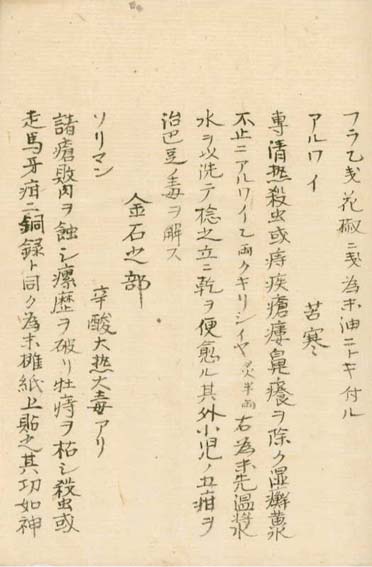 フラ乞戔花椒二戔為末油ニトキ付ル
アルワイ　苦寒
専清熱殺虫或痔疾瘡瘻鼻癢ヲ除ク湿癬黄水
不止ニアルワイ乞両クキリシイヤ炙半両右為末先温将水
水ヲ以洗テ捻之立ニ乾ヲ便愈ル其外小児ノ五疳ヲ
治巴豆ノ毒ヲ解ス
金石之部
ソリマン　辛酸大熱大毒アリ
諸瘡敗肉ヲ蝕シ瘰歴ヲ破リ牡痔ヲ枯シ殺虫或
走馬牙疳ニ銅録ト同ク為末雄紙上貼之其功如神